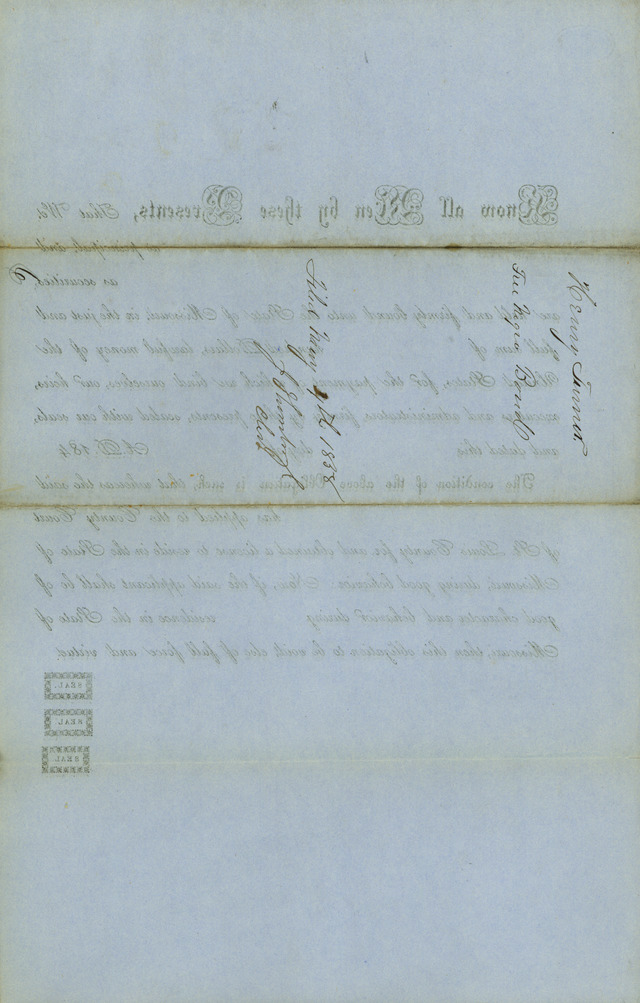 Know all Men by these Presents, That We,
as principal, and
as securities,
are held and firmly bound unto the State of Missouri, in the just and
full sum of Dollars, lawful money of the
United States, for the payment of which we bind ourselves, our heirs,
executors and administrators, firmly by these presents, sealed with our seals,
and dated this day of A. D. 184
The condition of the above Obligation is such, that whereas the said
has applied to the County Court
of St. Louis County for and obtained a license to reside in the State of
Missouri, during good behavior: Now, if the said applicant shall be of
good character and behavior during residence in the State of
Missouri, then this obligation to be void, else of full force and virtue.
SEAL.
SEAL
SEAL
Henry Turner
Free Negro Bond
Filed May
Clerk
6